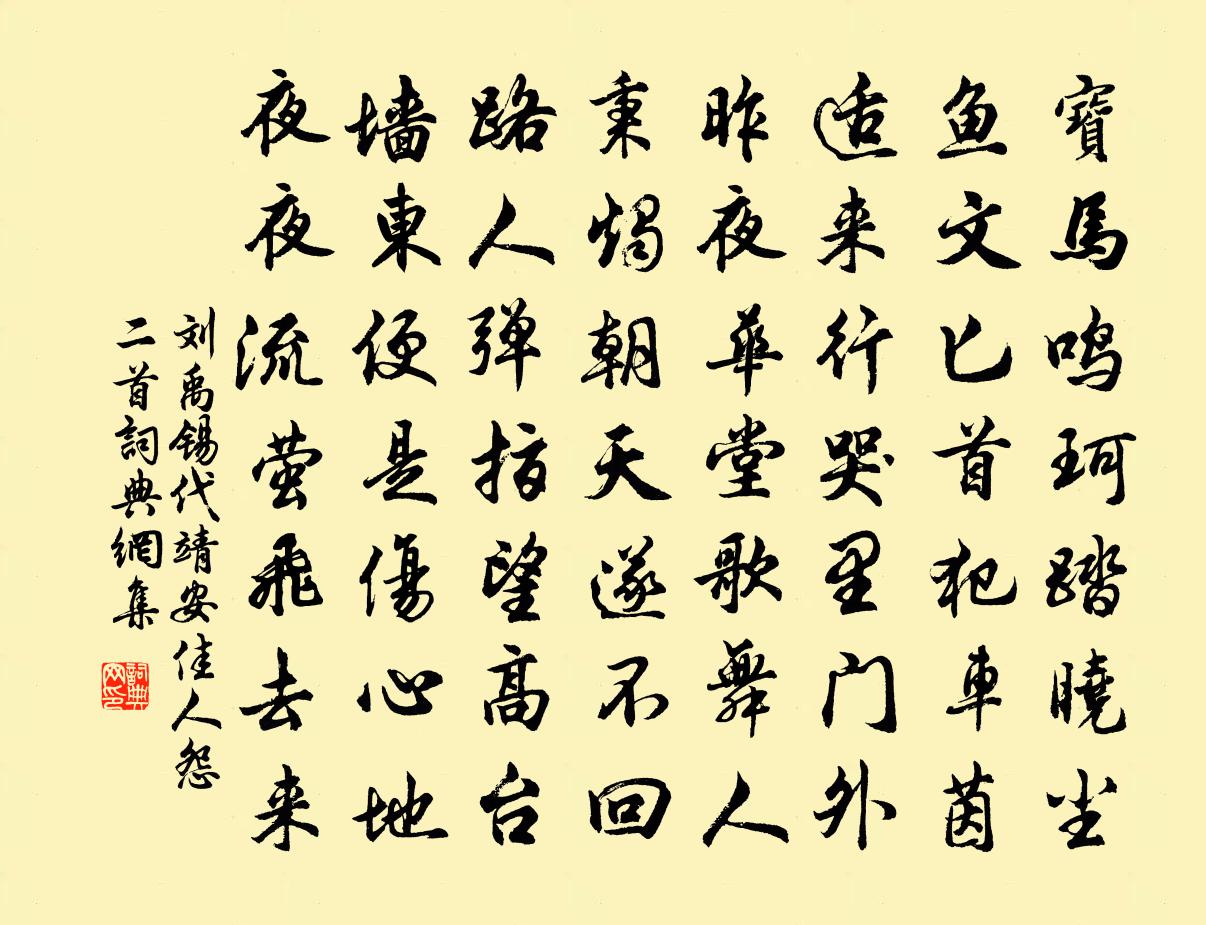 寶馬鸣珂踏曉尘
鱼文匕首犯車茵
适来行哭里门外
昨夜華堂歌舞人
秉燭朝天遂不回
路人弹指望高台
墻東便是傷心地
夜夜流萤飛去来
刘禹锡代靖安佳人怨
二首詞典網集
詞典
网印